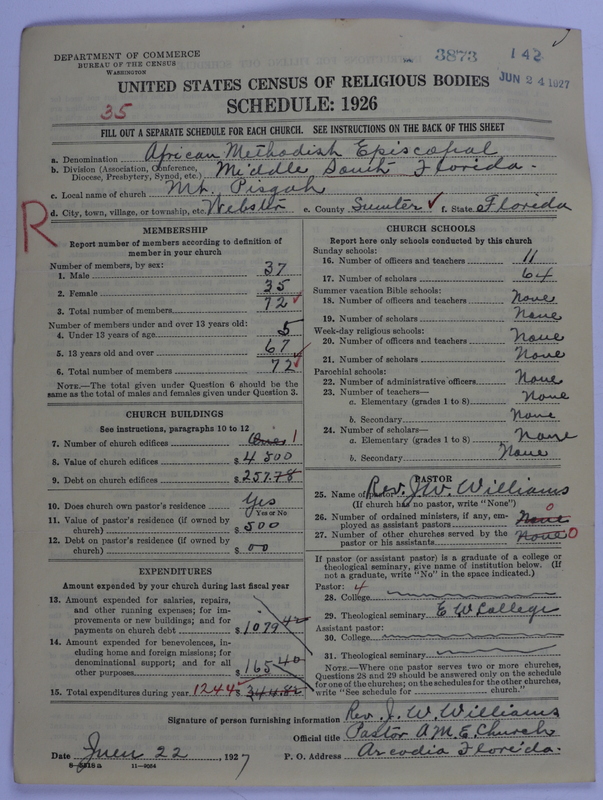 DEPARTMENT OF COMMERCE
BUREAU OF THE CENSUS
WASHINGTON
3873 142
JUN 24 1927
UNITED STATES CENSUS OF RELIGIOUS BODIES
SCHEDULE: 1926
35
FILL OUT A SEPARATE SCHEDULE FOR EACH CHURCH. SEE INSTRUCTIONS ON THE BACK OF THIS SHEET
a. Denomination African Methodish Episcopal
b. Division (Association, Conference, Diocese, Presbytery, Synod, etc.) Middle South Florida.
c. Local name of church Mt, Pisgah
d. City, town, village, or township, etc. Webster e. County Sumter ✓ f. State Florida
R
MEMBERSHIP
Report number of members according to definition of
member in your church
Number of members, by sex:
1. Male 37
2. Female 35
3. Total number of members 72
Number of members under and over 13 years old:
4. Under 13 years of age 5
5. 13 years old and over 67
6. Total number of members 72
NOTE.—The total given under Question 6 should be
the same as the total of males and females given under Question 3.
CHURCH BUILDINGS
See instructions, paragraphs 10 to 12
7. Number of church edifices 1
8. Value of church edifices $ 4500
9. Debt on church edifices $ 257.78
10. Does church own pastor's residence Yes
Yes or No
11. Value of pastor's residence (if owned by
church) $ 500
12. Debt on pastor's residence (if owned by
church) $ 00
EXPENDITURES
Amount expended by your church during last fiscal year
13. Amount expended for salaries, repairs,
and other running expenses; for im-
provements or new buildings; and for
payments on church debt $ 1079 42
14. Amount expended for benevolences, in-
cluding home and foreign missions; for
denominational support; and for all
other purposes $ 165 40
15. Total expenditures during year 1244 $ 344.82
CHURCH SCHOOLS
Report here only schools conducted by this church
Sunday schools:
16. Number of officers and teachers 11
17. Number of scholars 64
Summer vacation Bible schools:
18. Number of officers and teachers None
19. Number of scholars None
Week-day religious schools:
20. Number of officers and teachers None
21. Number of scholars None
Parochial schools:
22. Number of administrative officers None
23. Number of teachers—
a. Elementary (grades 1 to 8) None
b. Secondary None
24. Number of scholars—
a. Elementary (grades 1 to 8) None
b. Secondary None
PASTOR
25. Name of pastor Rev. J. W. Williams
(If church has no pastor, write "None")
26. Number of ordained ministers, if any, em-
ployed as assistant pastors None 0
27. Number of other churches served by the
pastor or his assistants None 0
If pastor (or assistant pastor) is a graduate of a college or
theological seminary, give name of institution below. (If
not a graduate, write "No" in the space indicated.)
Pastor: 4
28. College
29. Theological seminary E W College
Assistant pastor:
30. College
31. Theological seminary
NOTE.—Where one pastor serves two or more churches,
Questions 28 and 29 should be answered only on the schedule
for one of the churches; on the schedules for the other churches,
write "See schedule for church."
Signature of person furnishing information Rev. J. W. Williams
Official title Pastor A.M.E. Church
Date Juen 22, 1927 P. O. Address Arcadia Florida.
8—5818a 11—9054